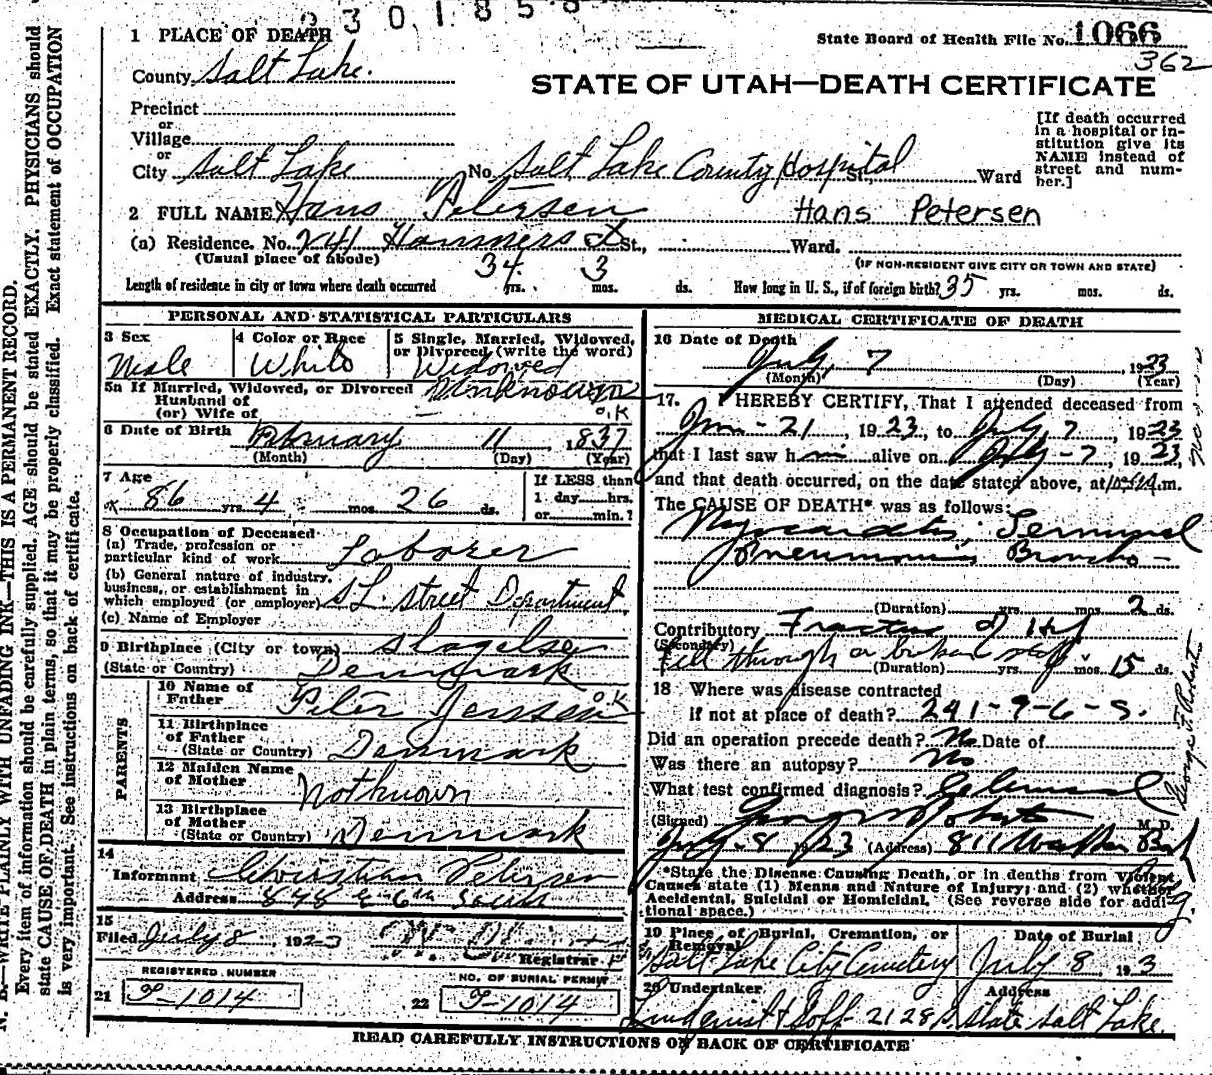 2301858
State Board of Health File No. 1066
362
STATE OF UTAH—DEATH CERTIFICATE
1 PLACE OF DEATH
County Salt Lake.
Precinct
or
Village
or
City Salt Lake No. Salt Lake County Hospital St., Ward
[If death occurred in a hospital or institution give its NAME instead of street and number.]
2 FULL NAME Hans Petersen Hans Petersen
(a) Residence. No. St., Ward.
(Usual place of abode) (IF NON-RESIDENT GIVE CITY OR TOWN AND STATE)
Length of residence in city or town where death occurred 34 yrs. 3 mos. ds. How long in U. S., if of foreign birth? 35 yrs. mos. ds.
PERSONAL AND STATISTICAL PARTICULARS
3 Sex Male
4 Color or Race White
5 Single, Married, Widowed, or Divorced (write the word) Widowed
5a If Married, Widowed, or Divorced Unknown
Husband of
(or) Wife of
O.K
6 Date of Birth February 11, 1837
(Month) (Day) (Year)
7 Age
86 yrs. 4 mos. 26 ds.
If LESS than 1 day hrs. or min.?
8 Occupation of Deceased
(a) Trade, profession or particular kind of work Laborer
(b) General nature of industry, business, or establishment in which employed (or employer) S L. Street Department
(c) Name of Employer
9 Birthplace (City or town) Slagelse
(State or Country) Denmark
PARENTS
10 Name of Father Peter O.K
11 Birthplace of Father (State or Country) Denmark
12 Maiden Name of Mother Not known
13 Birthplace of Mother (State or Country) Denmark
14
Informant Christian Petersen
Address 848 E 6th South
15
Filed July 8 1923
Registrar
REGISTERED NUMBER NO. OF BURIAL PERMIT
21 P-1014 22 P-1014
MEDICAL CERTIFICATE OF DEATH
16 Date of Death
July 7, 1923
(Month) (Day) (Year)
17. I HEREBY CERTIFY, That I attended deceased from
21, 1923, to July 7, 1923
that I last saw him alive on July-7, 1923,
and that death occurred, on the date stated above, at m.
The CAUSE OF DEATH* was as follows:
Myocarditis, Terminal
Pneumonia Broncho-
(Duration) yrs. mos. 2 ds.
Contributory Fracture of Hip
(Secondary)
Fell through a broken
(Duration) yrs. mos. 15 ds.
18 Where was disease contracted
If not at place of death? 241-9-6-S.
Did an operation precede death? No Date of
Was there an autopsy? No
What test confirmed diagnosis? Clinical
(Signed) George F Roberts M. D.
July-8 1923 (Address) 811 Walker Bank
Bldg.
George F. Roberts
*State the Disease Causing Death, or in deaths from Violent
Causes state (1) Means and Nature of Injury; and (2) whether
Accidental, Suicidal or Homicidal. (See reverse side for addi-
tional space.)
19 Place of Burial, Cremation, or Removal
Salt Lake City Cemetery
Date of Burial
July 8, 193
20 Undertaker Address
2128 S. State Salt Lake.
READ CAREFULLY INSTRUCTIONS ON BACK OF CERTIFICATE
N. B.—WRITE PLAINLY WITH UNFADING INK—THIS IS A PERMANENT RECORD.
Every item of information should be carefully supplied. AGE should be stated EXACTLY. PHYSICIANS should
state CAUSE OF DEATH in plain terms, so that it may be properly classified. Exact statement of OCCUPATION
is very important. See instructions on back of certificate.